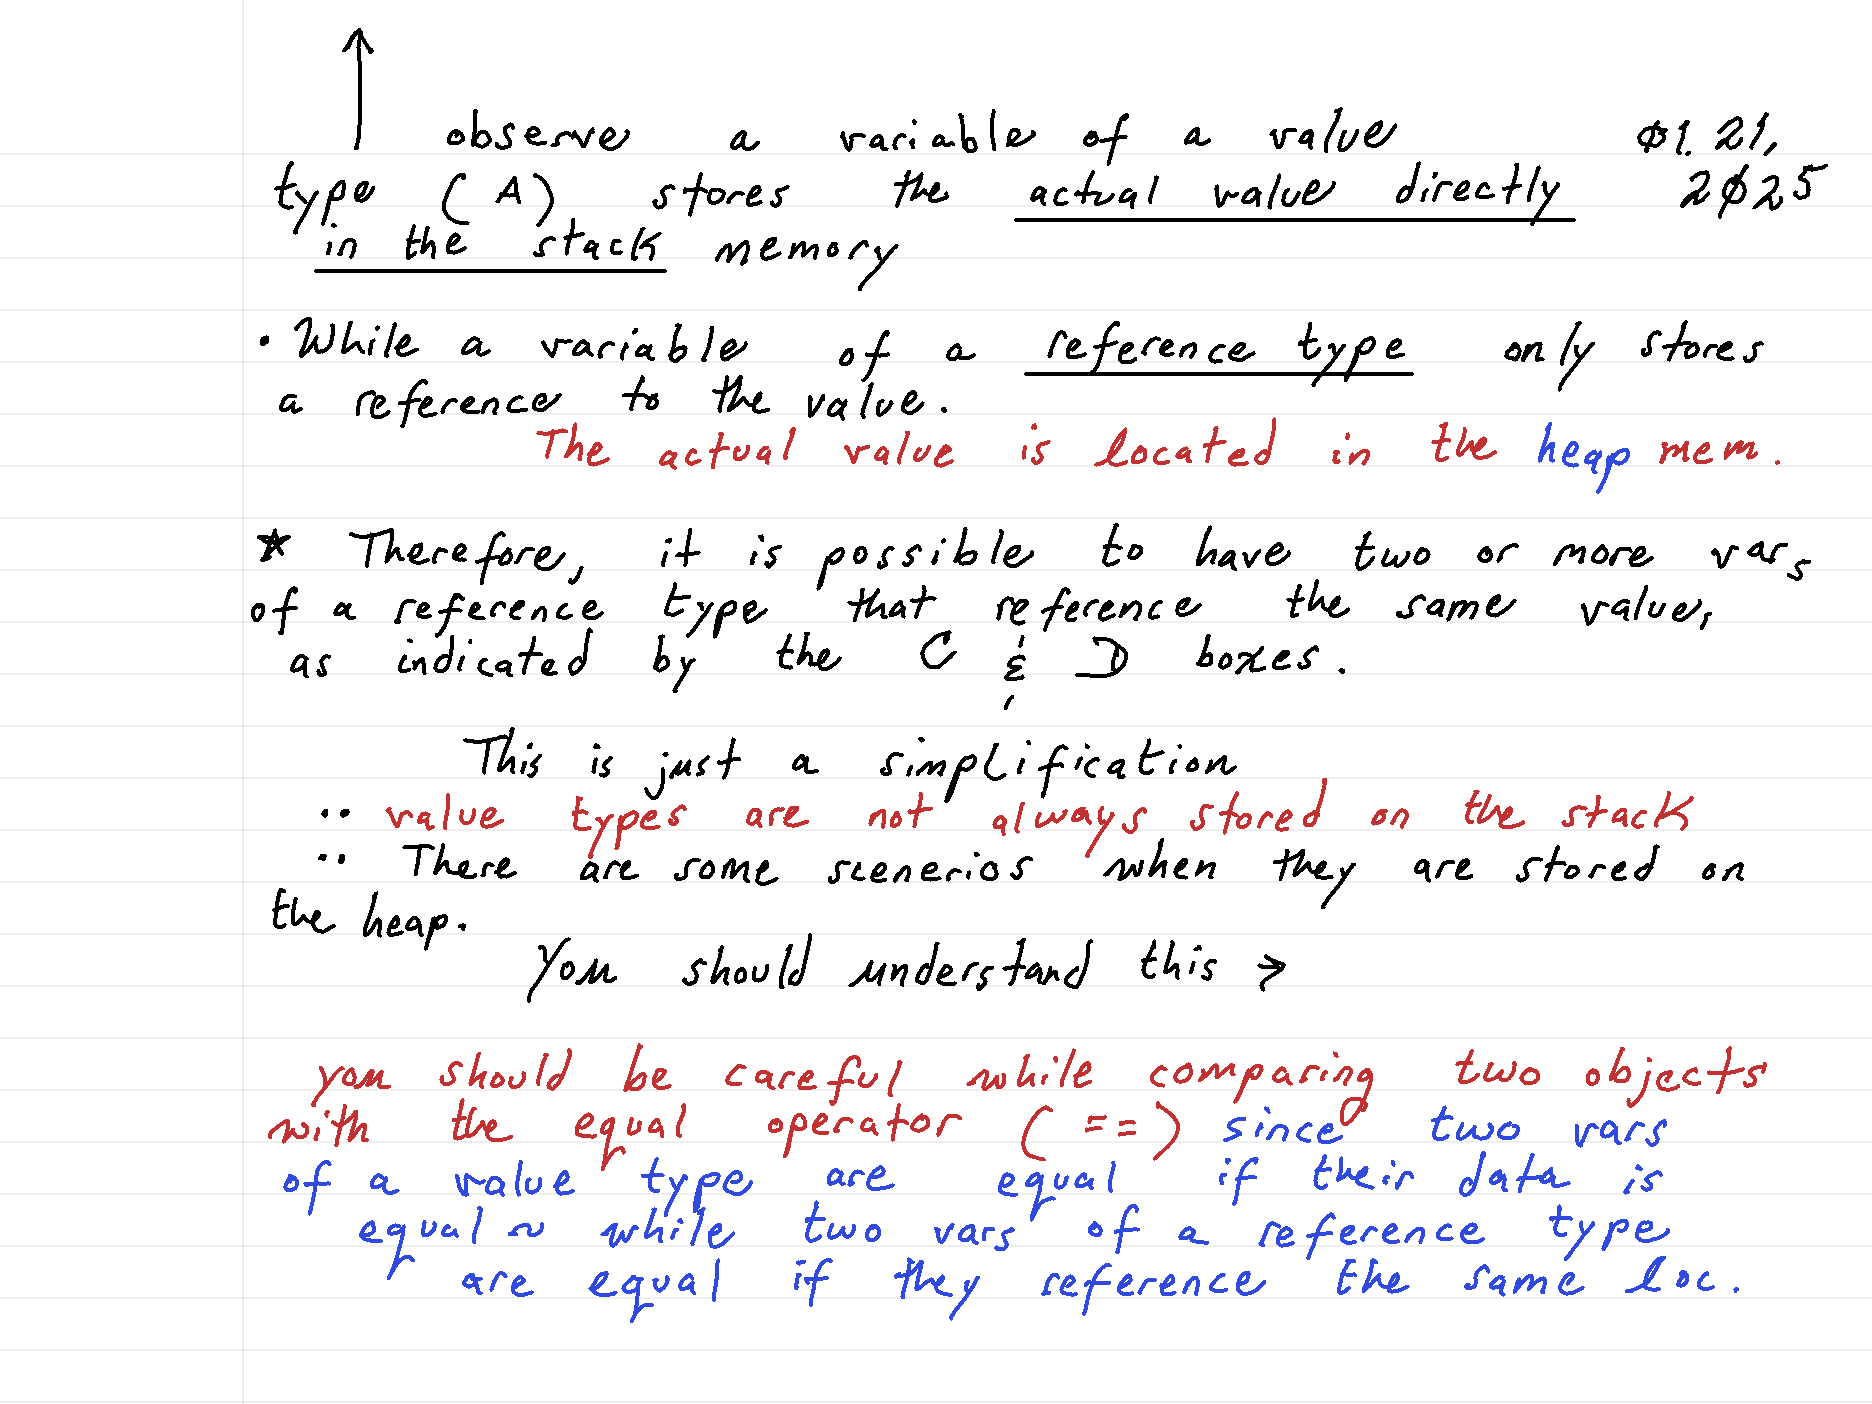 observe a variable of a value ø1.21,
type (A) stores the actual value directly 2ø25
in the stack memory
• While a variable of a reference type only stores
a reference to the value.
The actual value is located in the heap mem.
★ Therefore, it is possible to have two or more vars
of a reference type that reference the same value,
as indicated by the C & D boxes.
This is just a simplification
•• value types are not always stored on the stack
•• There are some scenerios when they are stored on
the heap.
You should understand this →
you should be careful while comparing two objects
with the equal operator (==) since two vars
of a value type are equal if their data is
equal ~ while two vars of a reference type
are equal if they reference the same loc.